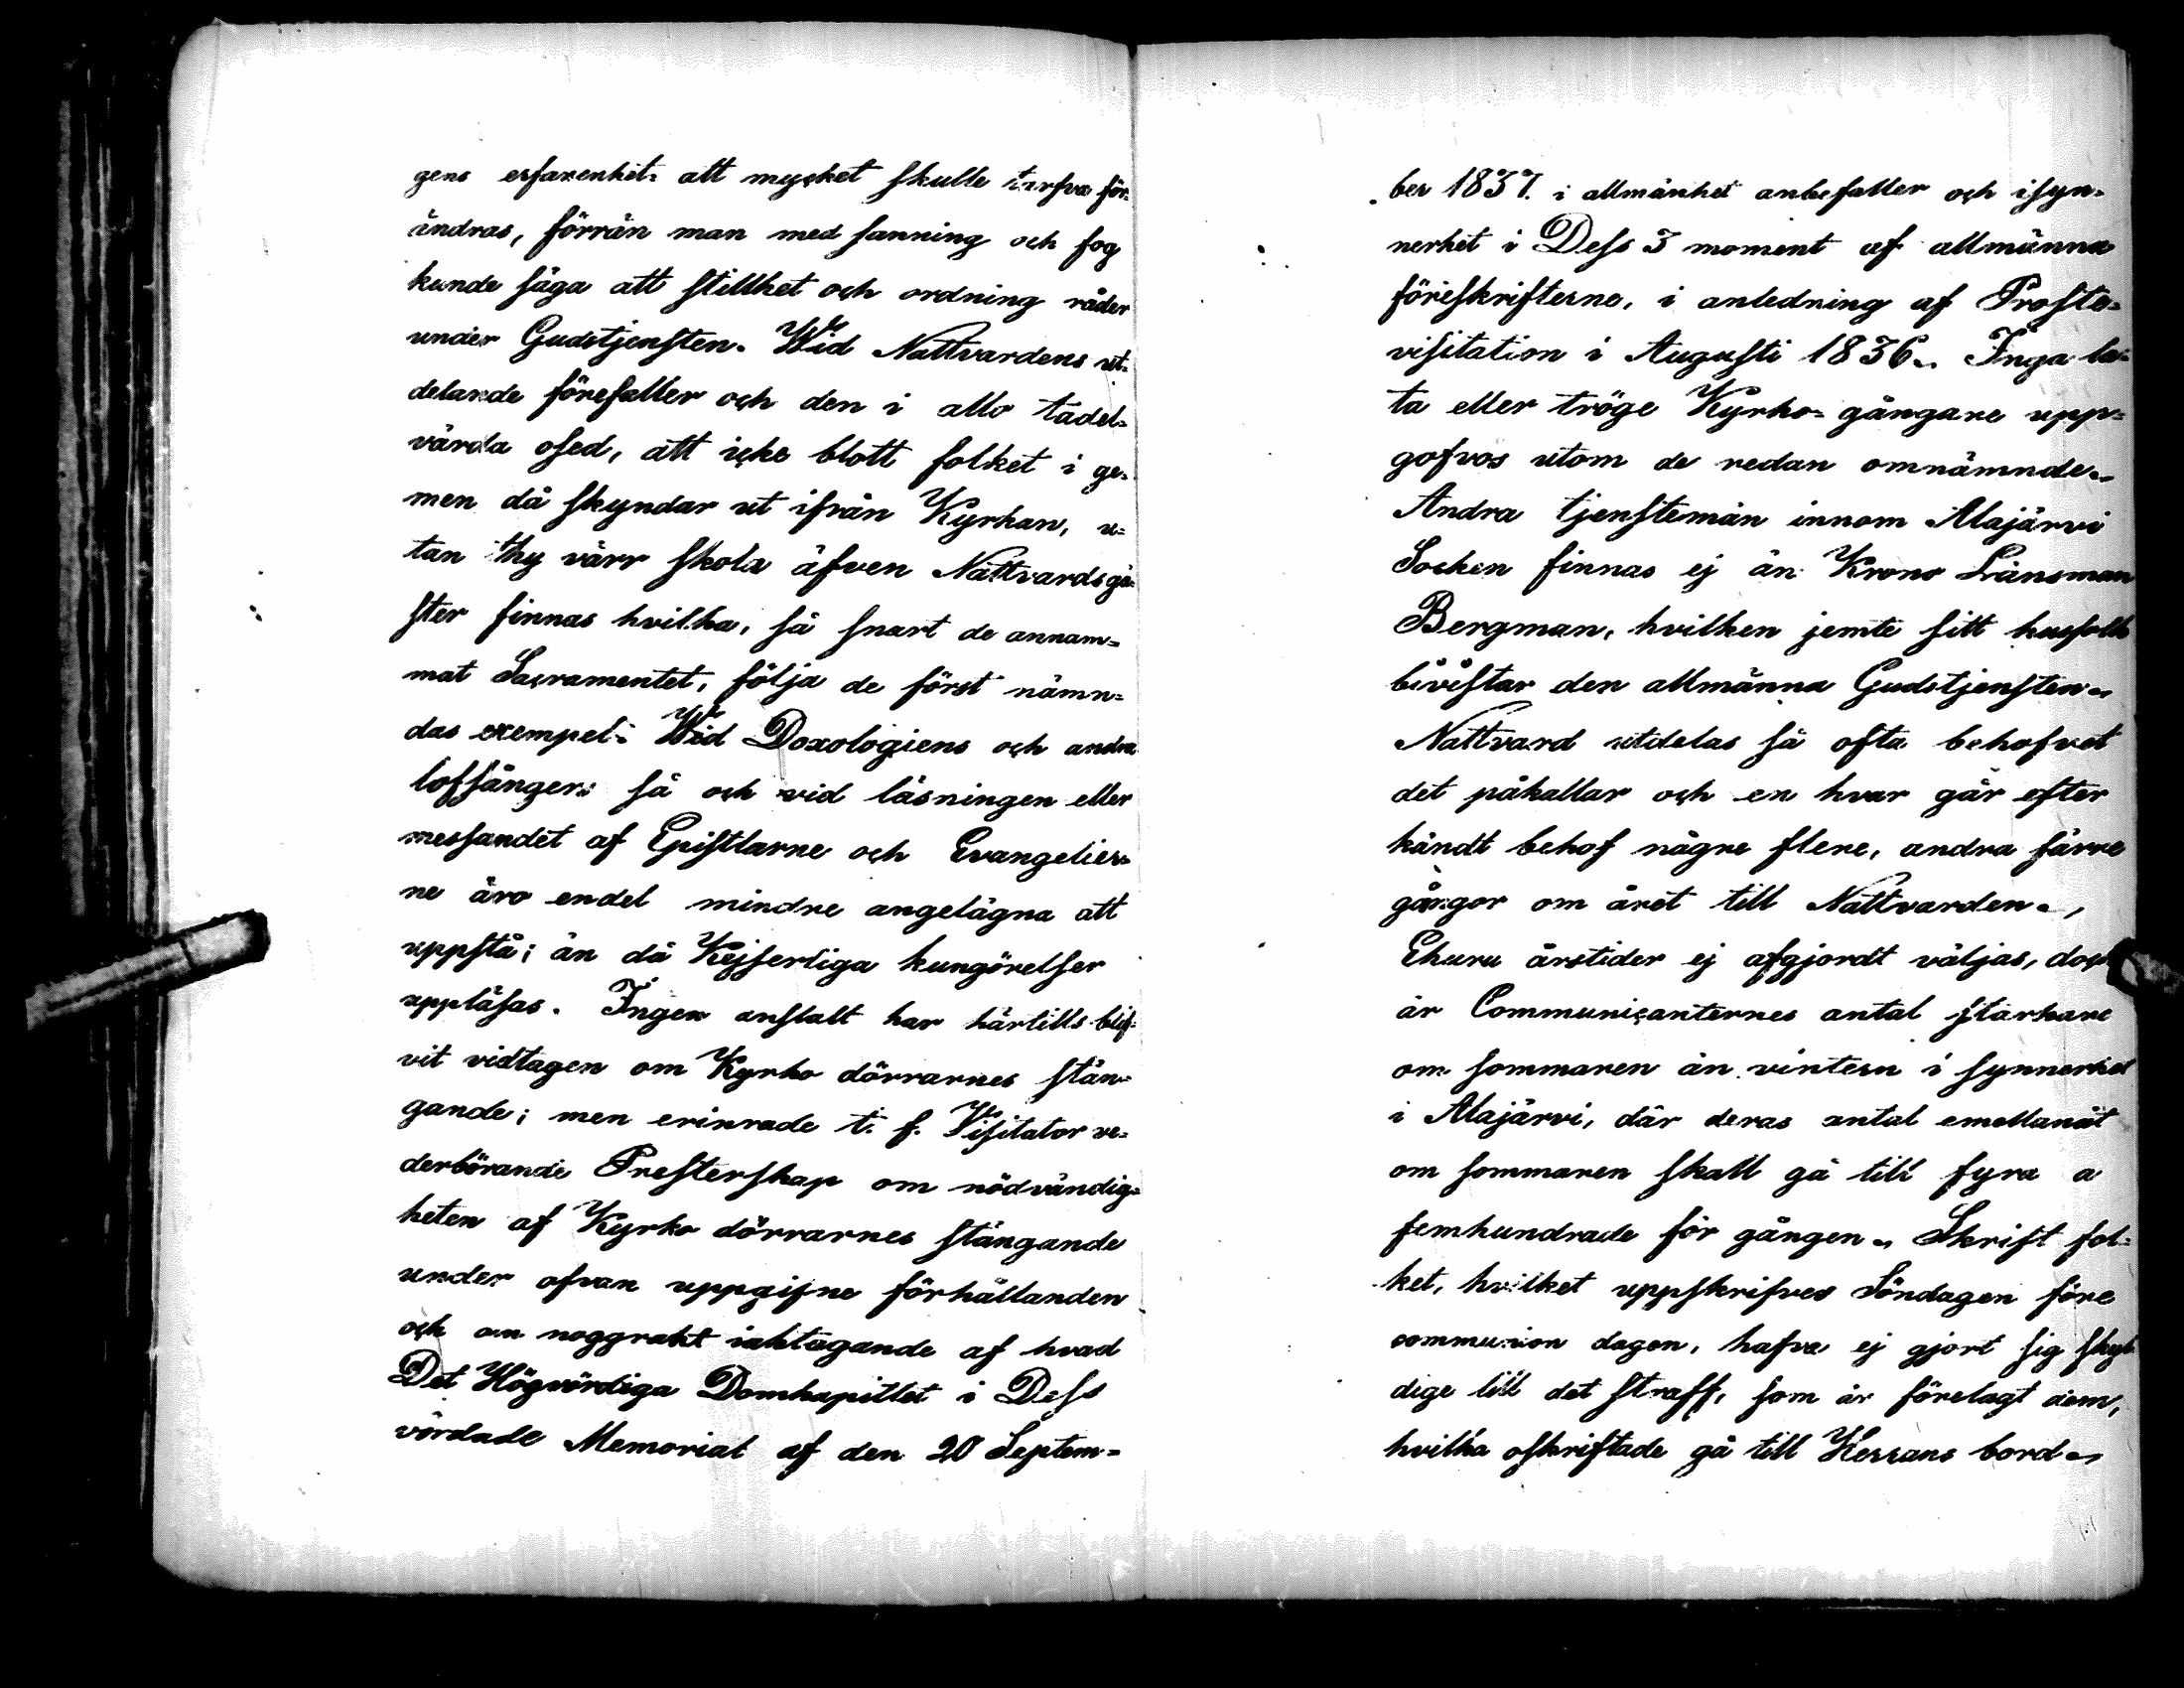 gens erfarenhet: att mycket skulle tarfva för-
ändras, förrän man med sanning och fog
kunde säga att stillhet och ordning råder
under Gudstjensten. Wid Nattvardens ut-
delande förefaller och den i allo tadel-
värda osed, att icke blott folket i ge-
men då skyndar ut ifrån Kyrkan, u-
tan thy värr skola äfven Nattvardsgä-
ster finnas hvilka, så snart de annam-
mat Sacramentet, följa de först nämn-
das exempel: Wid Doxologiens och andra
lofsånger: så och vid läsningen eller
messandet af Epistlarne och Evangelier-
ne äro endel mindre angelägna att
uppstå; än då Kejserliga kungörelser
uppläsas. Ingen anstalt har härtills blif-
vit vidtagen om Kyrko dörrarnes stän-
gande; men erinrade t. f. Visitator ve-
derbörande Presterskap om nödvändig-
heten af Kyrko dörrarnes stängande
under ofvan uppgifne förhållanden
och om noggrakt iakttagande af hvad
Det Högvördiga Domkapitlet i Dess
vördade Memorial af den 20 Septem-
ber 1837. i allmänhet anbefaller och isyn-
nerhet i Dess 3 moment af allmänna
föreskrifterne, i anledning af Proste-
visitation i Augusti 1836. Inga la-
ta eller tröge Kyrko-gångare upp-
gofvos utom de redan omnämnde.
Andra tjenstemän innom Alajärvi
Socken finnas ej än Krono Länsman
Bergman, hvilken jemte sitt husfolk
bivistar den allmänna Gudstjensten.
Nattvard utdelas så ofta behofvet
det påkallar och en hvar går efter
kändt behof någre flere, andra färre
gångor om året till Nattvarden.,
Ehuru årstider ej afgjordt väljas, doch
är Communicanternes antal starkare
om sommaren än vintern i synnerhet
i Alajärvi, där deras antal emellanåt
om sommaren skall gå till fyra a
femhundrade för gången. Skrift fol-
ket, hvilket uppskrifves Söndagen före
communion dagen, hafva ej gjort sig skyl-
dige till det straff, som är förelagt dem,
hvilka oskriftade gå till Herrans bord.